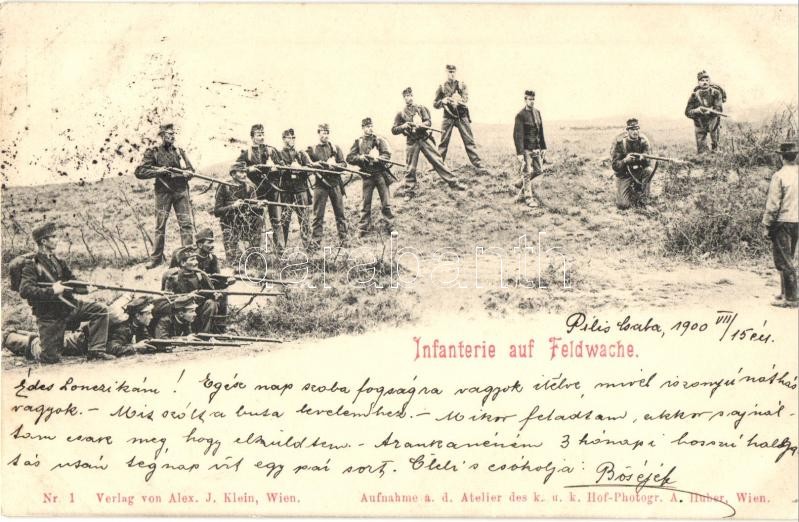 Infanterie auf Feldwache.
Pilis Csaba, 1900 VII/15én
Édes Lonczikám! Egész nap szoba fogságra vagyok itélve, mivel iszonyú náthás
vagyok. - Mit szólt a buta levelemhez. - Mikor feladtam, akkor sajnál-
tam csak meg hogy elküldtem. - Arankanéném 3 hónapi hosszú hallga
tás után tegnap irt egy pai sort. Öleli s csókolja: Böséjék
Nr. 1 Verlag von Alex. J. Klein, Wien. Aufnahme a. d. Atelier des k. u. k. Hof-Photogr. A. Huber, Wien.
darabanth